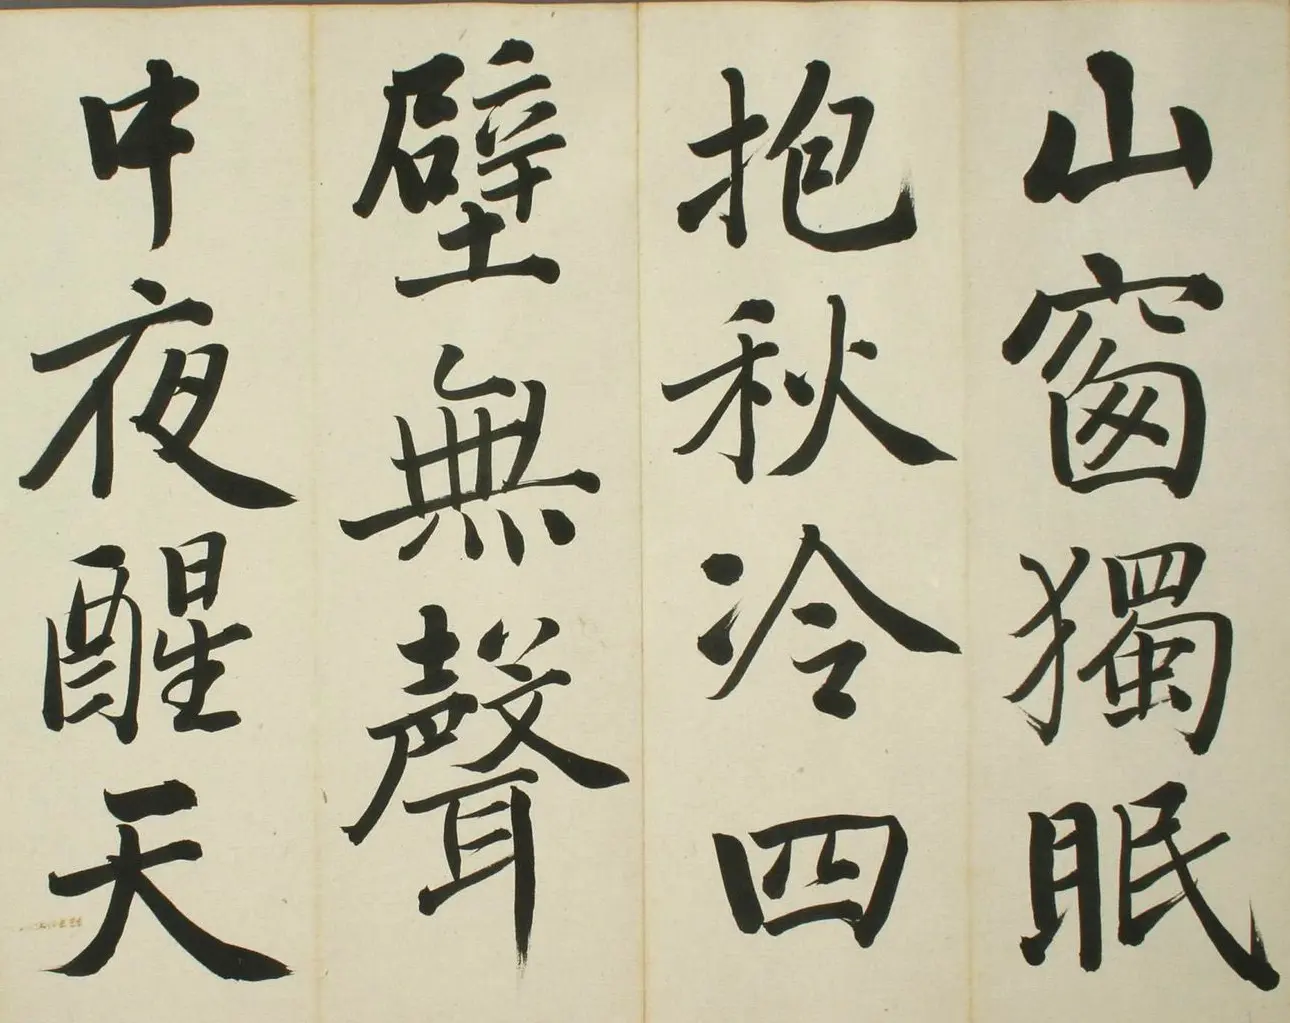 山窗獨眠
抱秋冷四
壁無聲
中夜醒天